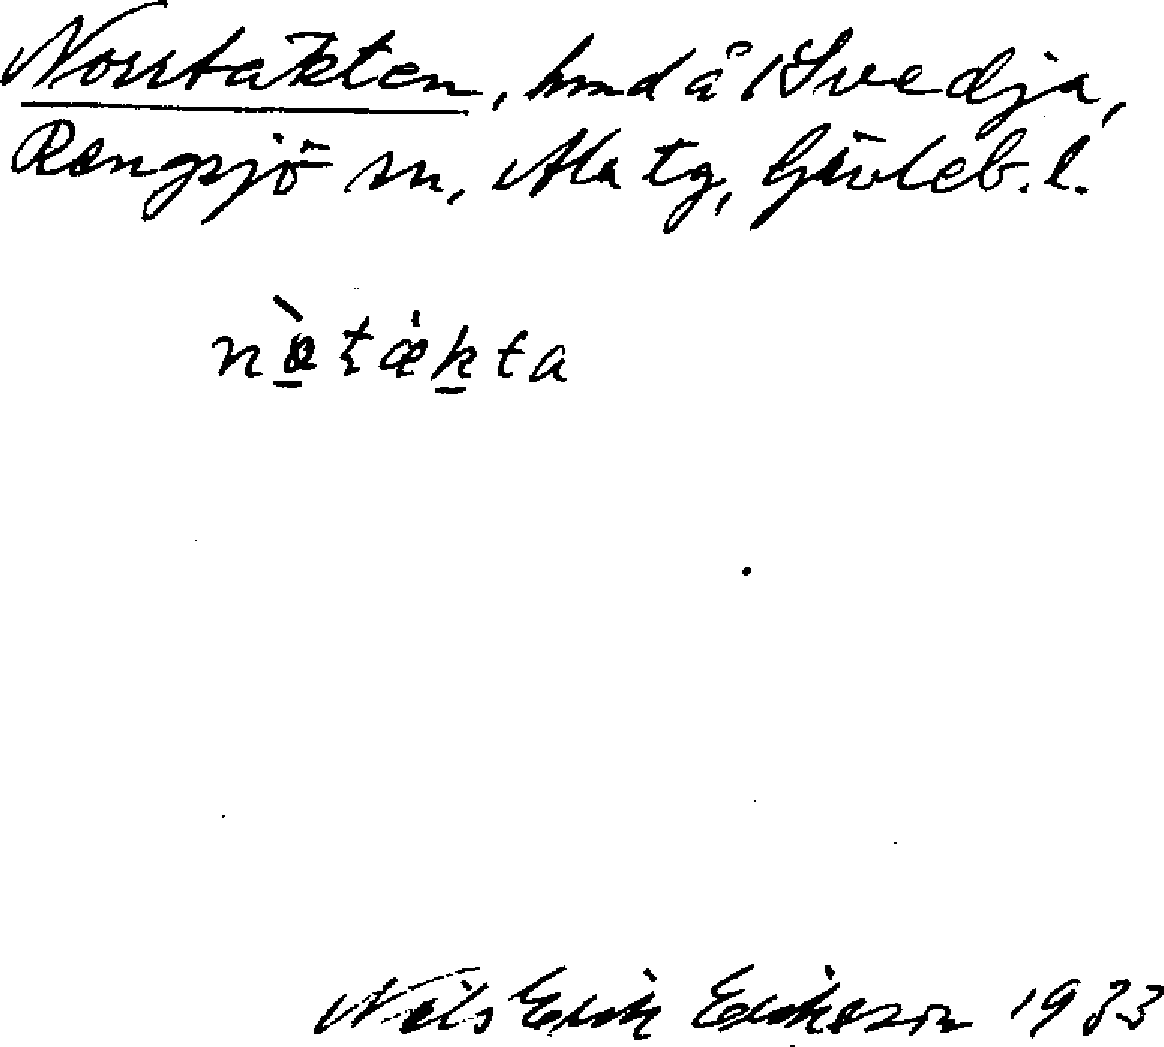 Norrtäkten, hmd å Svedja,
Rengsjö sn, Ala tg, Gävleb. l.
nò̱tǽḵta
Nils Erik Erikson 1933